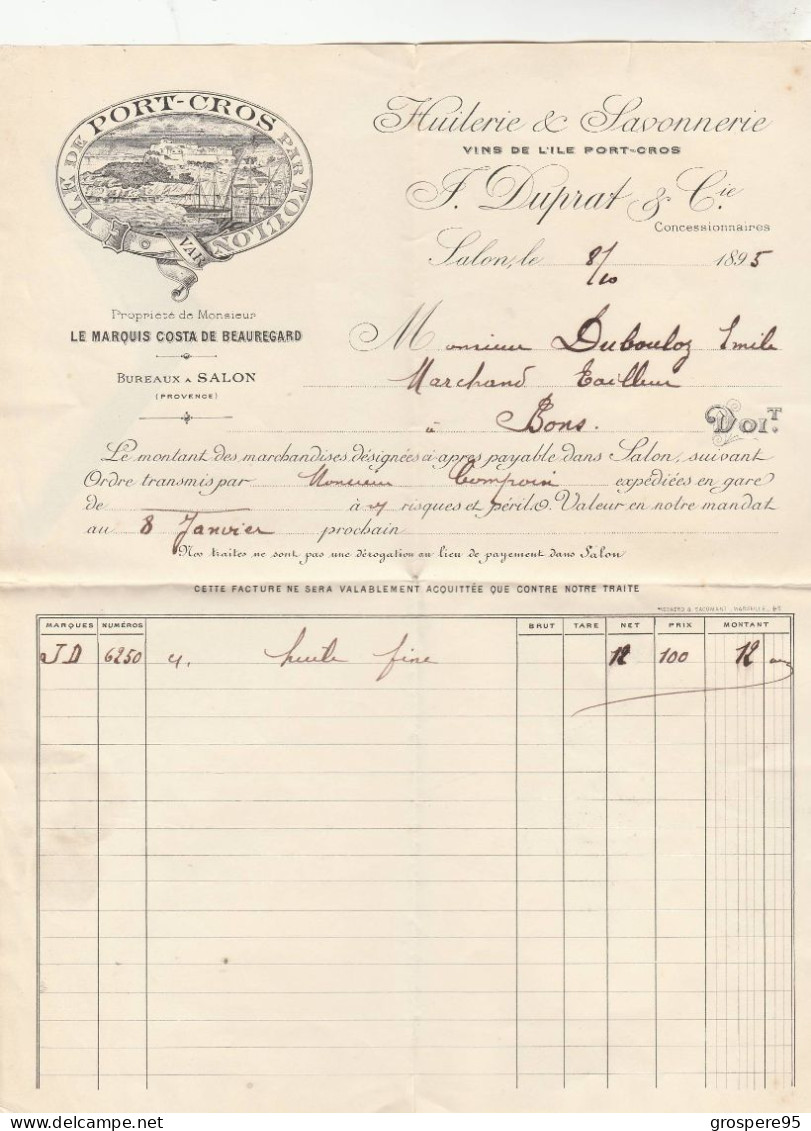 ILE DE PORT-CROS PAR TOULON
VAR
Propriété de Monsieur
LE MARQUIS COSTA DE BEAUREGARD
BUREAUX A SALON
(PROVENCE)
Huilerie & Savonnerie
VINS DE L'ILE PORT-CROS
J. Duprat & Cie
Concessionnaires
Salon, le 8/10 1895
Monsieur Dubouloz Emile
Marchand Tailleur
à Bons. DOIT
Le montant des marchandises désignées ci-apres payable dans Salon, suivant
Ordre transmis par Monsieur Compoin expédiées en gare
de à risques et périls. Valeur en notre mandat
au 8 Janvier prochain
Nos traites ne sont pas une dérogation au lieu de payement dans Salon
CETTE FACTURE NE SERA VALABLEMENT ACQUITTÉE QUE CONTRE NOTRE TRAITE
MARQUES NUMÉROS BRUT TARE NET PRIX MONTANT
JD 6250 huile fine 12 100 12
grospere95